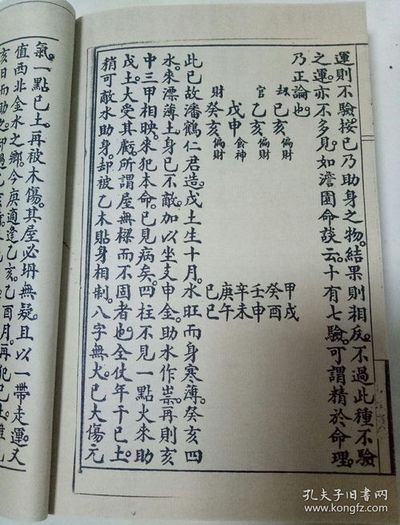 運則不驗按已乃助身之物結果則相反不過此種不驗
之運亦不多見如澹園命談云十有七驗可謂精於命理
乃正論也
劫 己亥 偏財
官 乙亥 偏財
戊申 食神
財 癸亥 偏財
甲戌
癸酉
壬申
辛未
庚午
己巳
此已故潘鶴仁君造戊土生十月水旺而身寒薄癸亥四
水來漂薄土身已不敵加以坐支申金助水作祟再則亥
中三甲相映來犯本命已見病矣四柱不見一點火來助
戊土大受其厭所謂屋無樑而不固者也全仗年干己土
稍可敵水助身却被乙木貼身相制八字無火已大傷元
氣一點已土再被木傷其屋必坍無疑且以一帶走運又
值西北金水之鄉今庚適逢乙亥乙酉月再犯己土
亥日而助之
孔夫子旧书网
www.kongfz.com